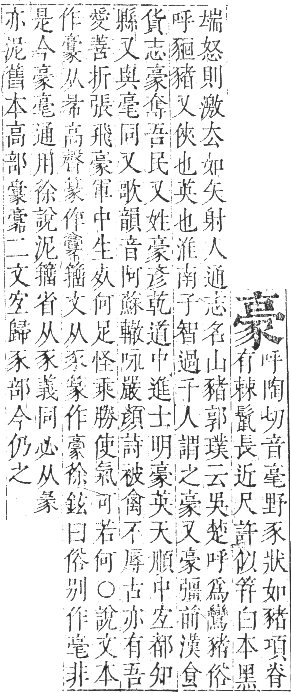 豪
呼陶切音毫野豕狀如豬項脊
有棘鬣長近尺許似筓白本黑
端怒則激去如矢射人通志名山豬郭璞云吳楚呼爲鸞豬俗
呼豲豬又俠也英也淮南子智過千人謂之豪又豪彊前漢食
貨志豪奪吾民又姓豪彥乾道中進士明豪英天順中安都知
縣又與毫同又歌韻音阿蘇轍咏嚴顏詩被禽不辱古亦有吾
愛善折張飛豪軍中生死何足怪乘勝使氣可若何○說文本
作从㣇高聲篆作籀文从豕篆作豪徐鉉曰俗別作毫非
是今豪毫通用徐說泥籀省从豕義同必从彖
亦泥舊本高部二文宜歸豕部今仍之